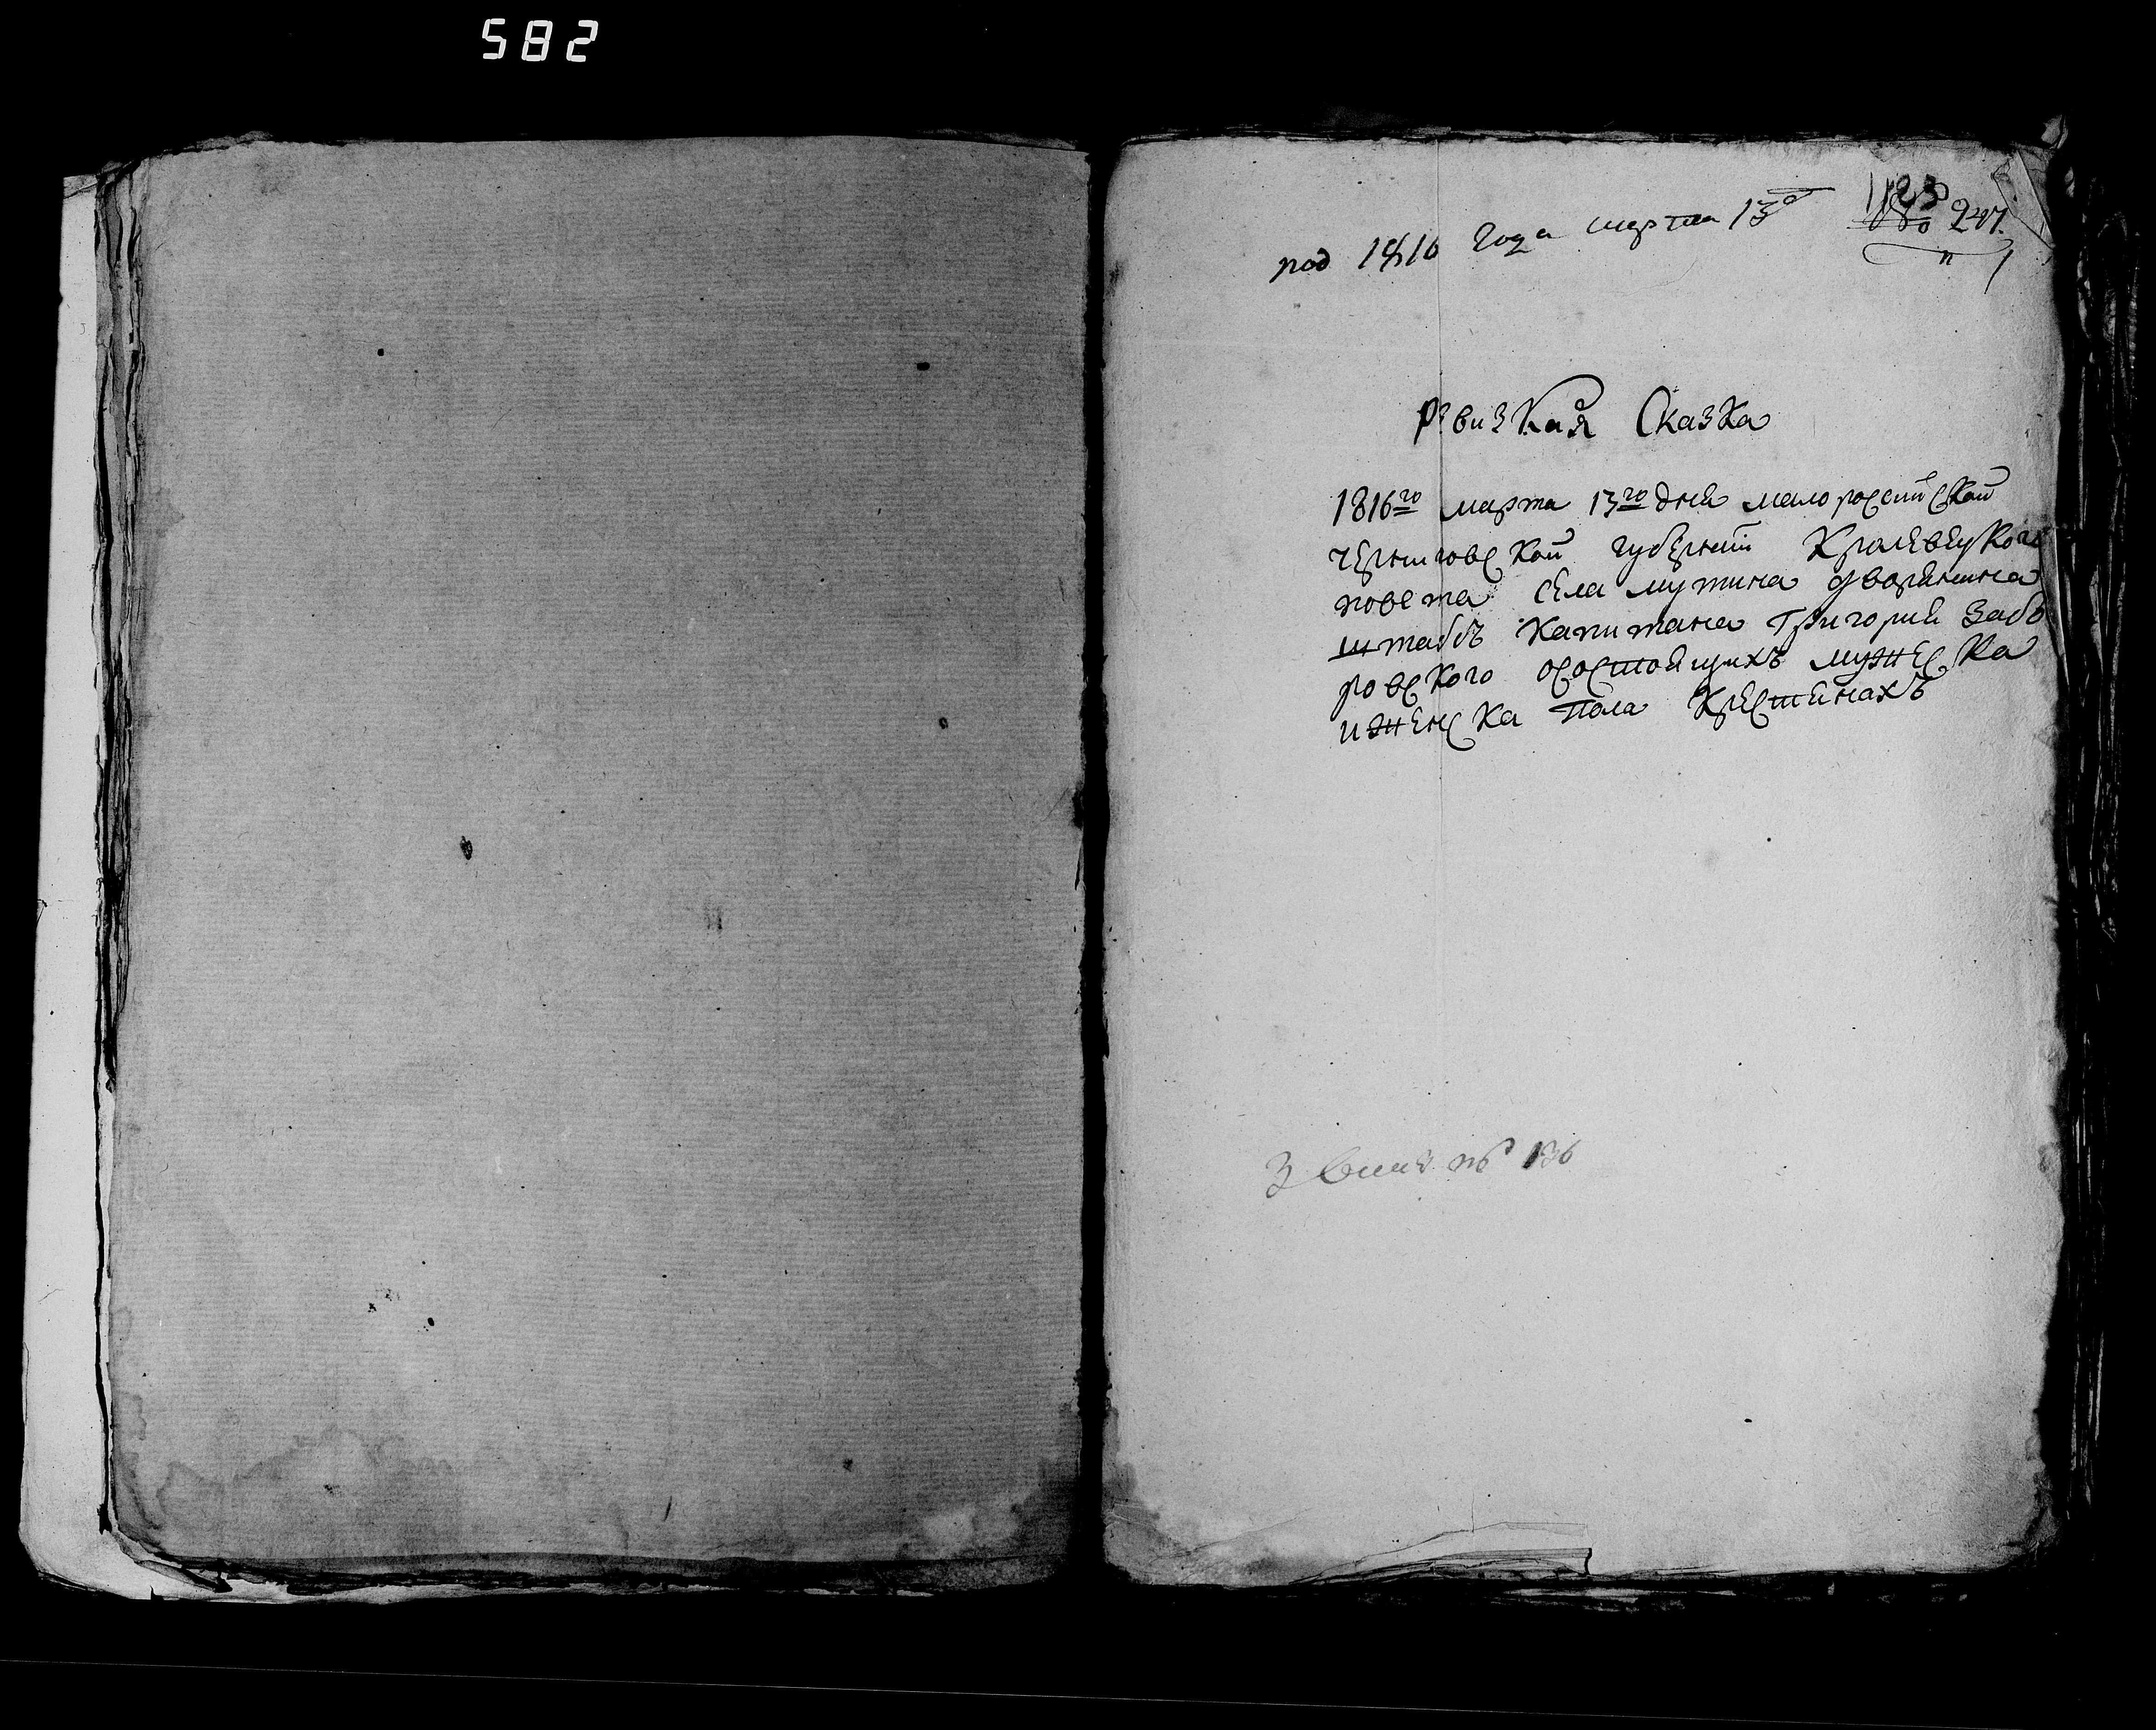 582
под 1816 года марта 13º
1123
№ 247.
Ревизкая Сказка
1816го марта 13го дня малоросийской
Черниговской губернии Кролевецкого
повета села мутина дворянина
штабсъ капитана Григория Забо
ровского осостоящихъ мужеска
иженска пола крестянахъ
№ 136